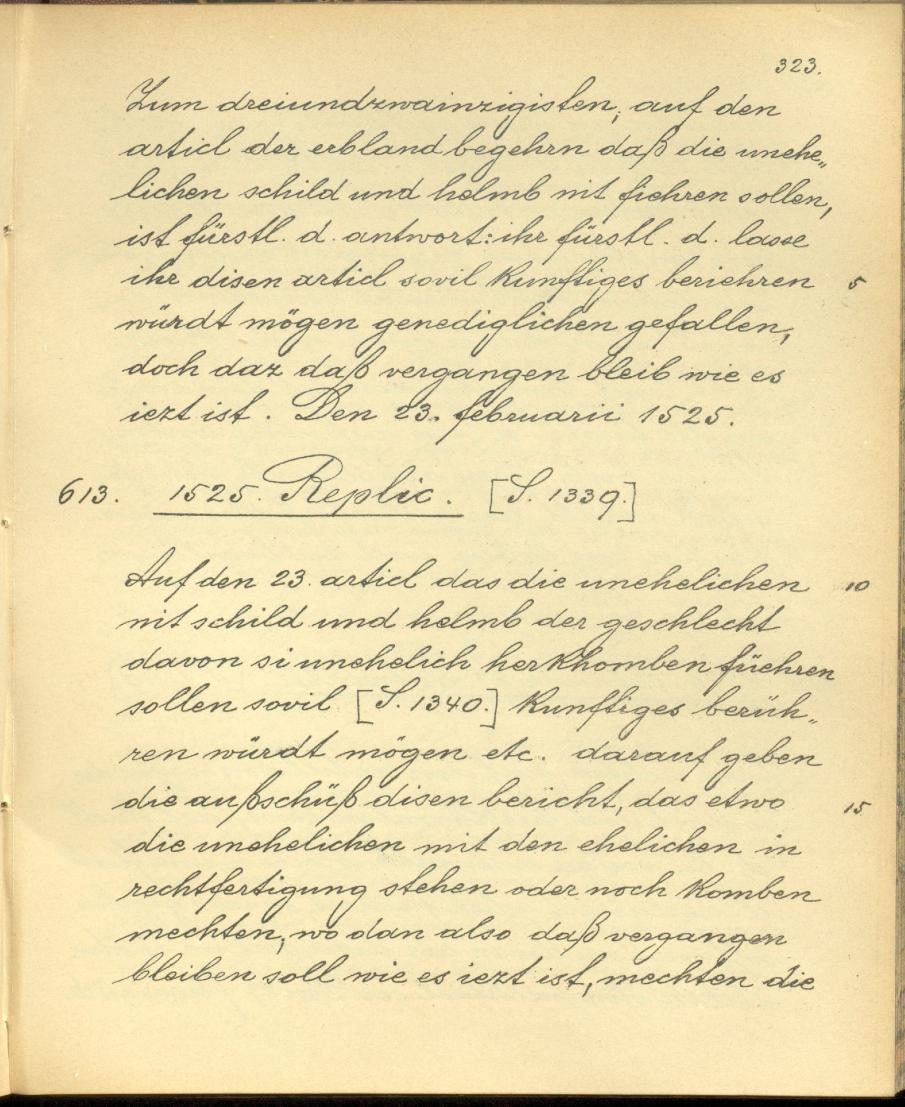 323.
Zum dreiundzwainzigisten, auf den
articl der erbland begehrn daß die unehe„
lichen schild und helmb nit fiehren sollen,
ist fürstl. d. antwort: ihr fürstl. d. lasse
ihr disen articl sovil kunfftiges beriehren 5
würdt mögen genediglichen gefallen,
doch daz daß vergangen bleib wie es
iezt ist. Den 23. februarii 1525.
613. 1525. Replic. [S. 1339.]
Auf den 23. articl das die unehelichen 10
nit schild und helmb der geschlecht
davon si unehelich herkhomben füehren
sollen sovil [S. 1340.] kunfftiges berüh„
ren würdt mögen etc. darauf geben
die außschüß disen bericht, das etwo 15
die unehelichen mit den ehelichen in
rechtfertigung stehen oder noch komben
mechten, wo dan also daß vergangen
bleiben soll wie es iezt ist, mechten die